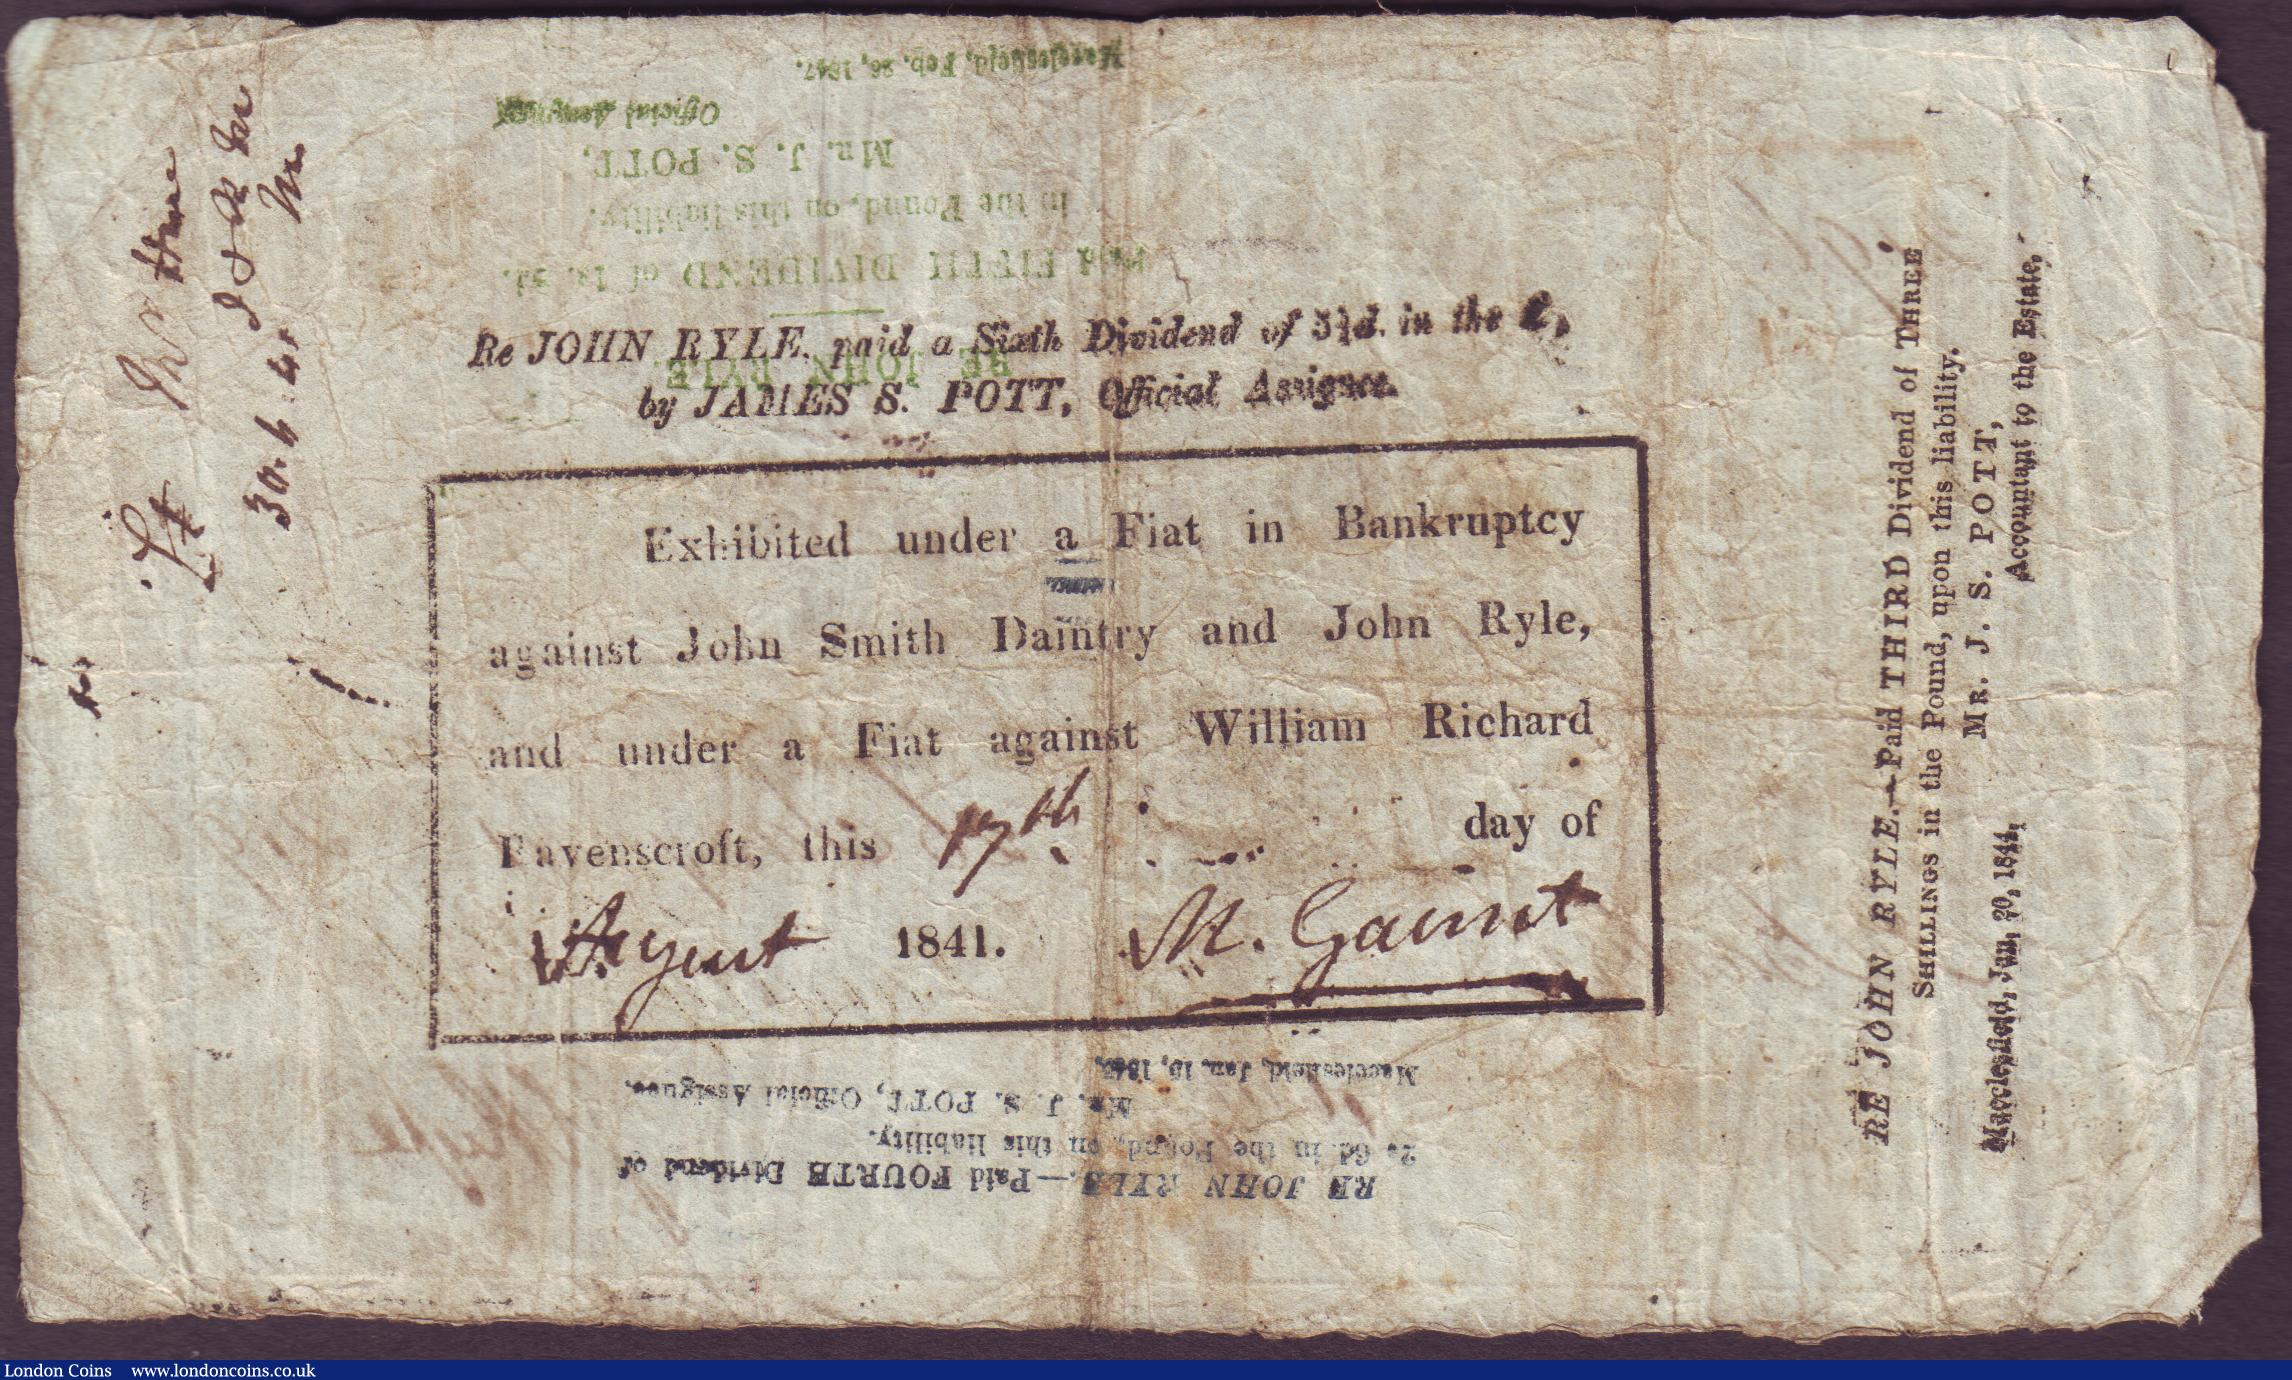 Macclesfield, Feb. 26, 1847.
Official Assignee
Mr. J. S. POTT,
in the Pound, on this liability.
Paid FIFTH DIVIDEND of 1s. 3d.
RE JOHN RYLE
Re JOHN RYLE, paid a Sixth Dividend of 5¼d. in the £,
by JAMES S. POTT, Official Assignee.
Exhibited under a Fiat in Bankruptcy
against John Smith Daintry and John Ryle,
and under a Fiat against William Richard
Ravenscroft, this 17th day of
August 1841. M. Gaunt
RE JOHN RYLE.—Paid FOURTH Dividend of
2s 6d in the Pound, on this liability.
Mr. J. S. POTT, Official Assignee.
Macclesfield, Jan. 
RE JOHN RYLE.—Paid THIRD Dividend of THREE
SHILLINGS in the Pound, upon this liability.
MR. J. S. POTT,
Accountant to the Estate.
Macclesfield, Jan. 20, 1844,
30.6.41
London Coins www.londoncoins.co.uk